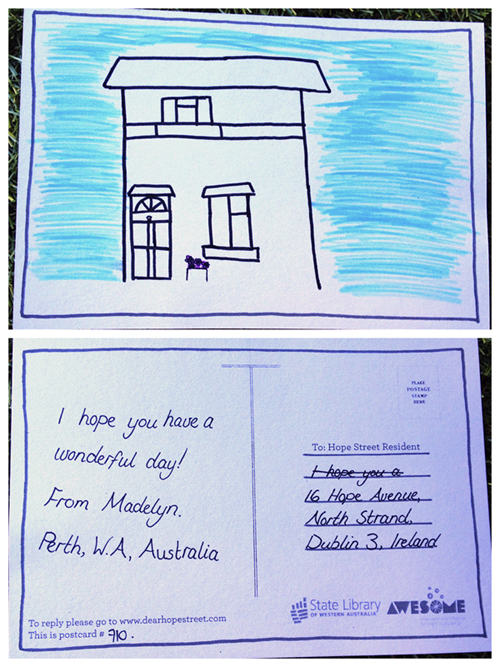 I hope you have a
wonderful day!
From Madelyn.
Perth, W.A, Australia
To reply please go to www.dearhopestreet.com
This is postcard # 710.
PLACE
POSTAGE
STAMP
HERE
To: Hope Street Resident
I hope you a
16 Hope Avenue,
North Strand,
Dublin 3, Ireland
State Library
OF WESTERN AUSTRALIA
AWESOME